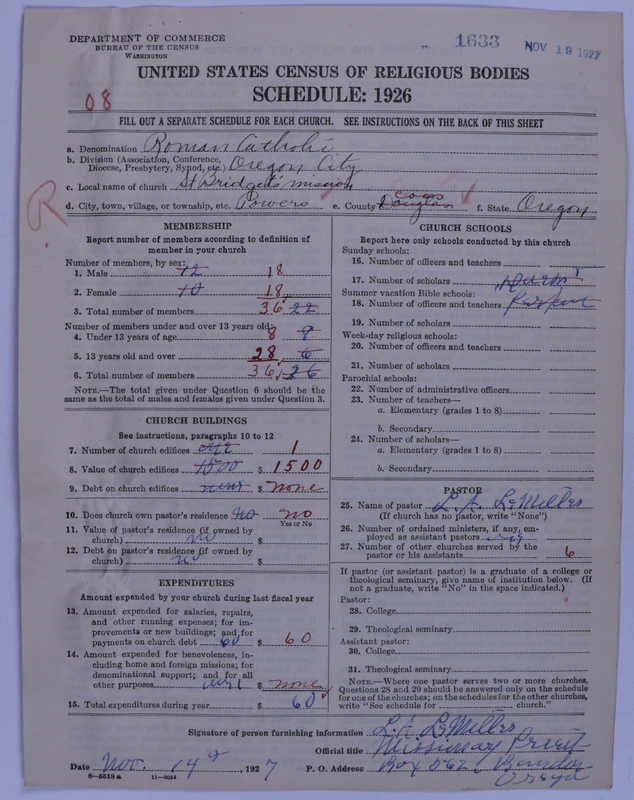 DEPARTMENT OF COMMERCE
BUREAU OF THE CENSUS
WASHINGTON
1633
NOV 19 1927
UNITED STATES CENSUS OF RELIGIOUS BODIES
SCHEDULE: 1926
08
FILL OUT A SEPARATE SCHEDULE FOR EACH CHURCH. SEE INSTRUCTIONS ON THE BACK OF THIS SHEET
a. Denomination Roman Catholic
b. Division (Association, Conference, Diocese, Presbytery, Synod, etc.) Oregon City
c. Local name of church St Bridget's mission
d. City, town, village, or township, etc. Powers e. County Douglas Coos f. State Oregon
R
MEMBERSHIP
Report number of members according to definition of
member in your church
Number of members, by sex:
1. Male 12 18
2. Female 10 18
3. Total number of members 36 22
Number of members under and over 13 years old:
4. Under 13 years of age 8 8
5. 13 years old and over 28 6
6. Total number of members 36 36
NOTE.—The total given under Question 6 should be the
same as the total of males and females given under Question 3.
CHURCH BUILDINGS
See instructions, paragraphs 10 to 12
7. Number of church edifices one 1
8. Value of church edifices 1500 $ 1500
9. Debt on church edifices none $ none
10. Does church own pastor's residence No no
Yes or No
11. Value of pastor's residence (if owned by
church) no $
12. Debt on pastor's residence (if owned by
church) no $
EXPENDITURES
Amount expended by your church during last fiscal year
13. Amount expended for salaries, repairs,
and other running expenses; for im-
provements or new buildings; and for
payments on church debt 60 $ 60
14. Amount expended for benevolences, in-
cluding home and foreign missions; for
denominational support; and for all
other purposes $ none
15. Total expenditures during year $ 60
CHURCH SCHOOLS
Report here only schools conducted by this church
Sunday schools:
16. Number of officers and teachers
17. Number of scholars
Summer vacation Bible schools:
18. Number of officers and teachers
19. Number of scholars
Week-day religious schools:
20. Number of officers and teachers
21. Number of scholars
Parochial schools:
22. Number of administrative officers
23. Number of teachers—
a. Elementary (grades 1 to 8)
b. Secondary
24. Number of scholars—
a. Elementary (grades 1 to 8)
b. Secondary
PASTOR
25. Name of pastor L. A. LeMiller
(If church has no pastor, write "None")
26. Number of ordained ministers, if any, em-
ployed as assistant pastors
27. Number of other churches served by the
pastor or his assistants 6
If pastor (or assistant pastor) is a graduate of a college or
theological seminary, give name of institution below. (If
not a graduate, write "No" in the space indicated.)
Pastor:
28. College
29. Theological seminary
Assistant pastor:
30. College
31. Theological seminary
NOTE.—Where one pastor serves two or more churches,
Questions 28 and 29 should be answered only on the schedule
for one of the churches; on the schedules for the other churches,
write "See schedule for church."
Signature of person furnishing information L. A. LeMiller
Official title Missionary Priest
Date Nov. 14th, 1927 P. O. Address Box 562, Bandon
Oregon
8—5518a 11—9034